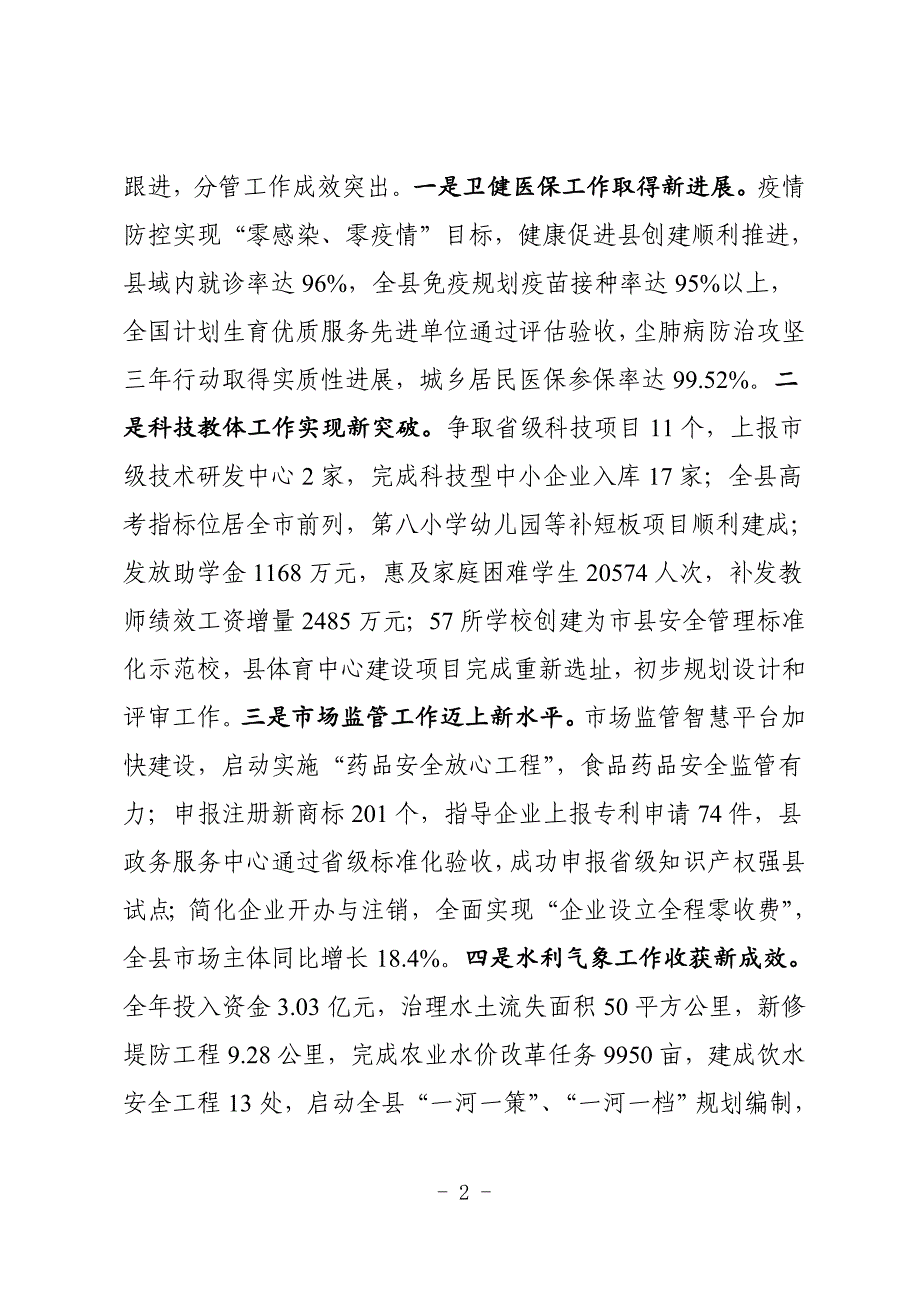 跟进，分管工作成效突出。一是卫健医保工作取得新进展。疫情
防控实现“零感染、零疫情”目标，健康促进县创建顺利推进，
县域内就诊率达 96%，全县免疫规划疫苗接种率达 95%以上，
全国计划生育优质服务先进单位通过评估验收，尘肺病防治攻坚
三年行动取得实质性进展，城乡居民医保参保率达 99.52%。二
是科技教体工作实现新突破。争取省级科技项目 11 个，上报市
级技术研发中心 2 家，完成科技型中小企业入库 17 家；全县高
考指标位居全市前列，第八小学幼儿园等补短板项目顺利建成；
发放助学金 1168 万元，惠及家庭困难学生 20574 人次，补发教
师绩效工资增量 2485 万元；57 所学校创建为市县安全管理标准
化示范校，县体育中心建设项目完成重新选址，初步规划设计和
评审工作。三是市场监管工作迈上新水平。市场监管智慧平台加
快建设，启动实施“药品安全放心工程”，食品药品安全监管有
力；申报注册新商标 201 个，指导企业上报专利申请 74 件，县
政务服务中心通过省级标准化验收，成功申报省级知识产权强县
试点；简化企业开办与注销，全面实现“企业设立全程零收费”，
全县市场主体同比增长 18.4%。四是水利气象工作收获新成效。
全年投入资金 3.03 亿元，治理水土流失面积 50 平方公里，新修
堤防工程 9.28 公里，完成农业水价改革任务 9950 亩，建成饮水
安全工程 13 处，启动全县“一河一策”、“一河一档”规划编制，
- 2 -